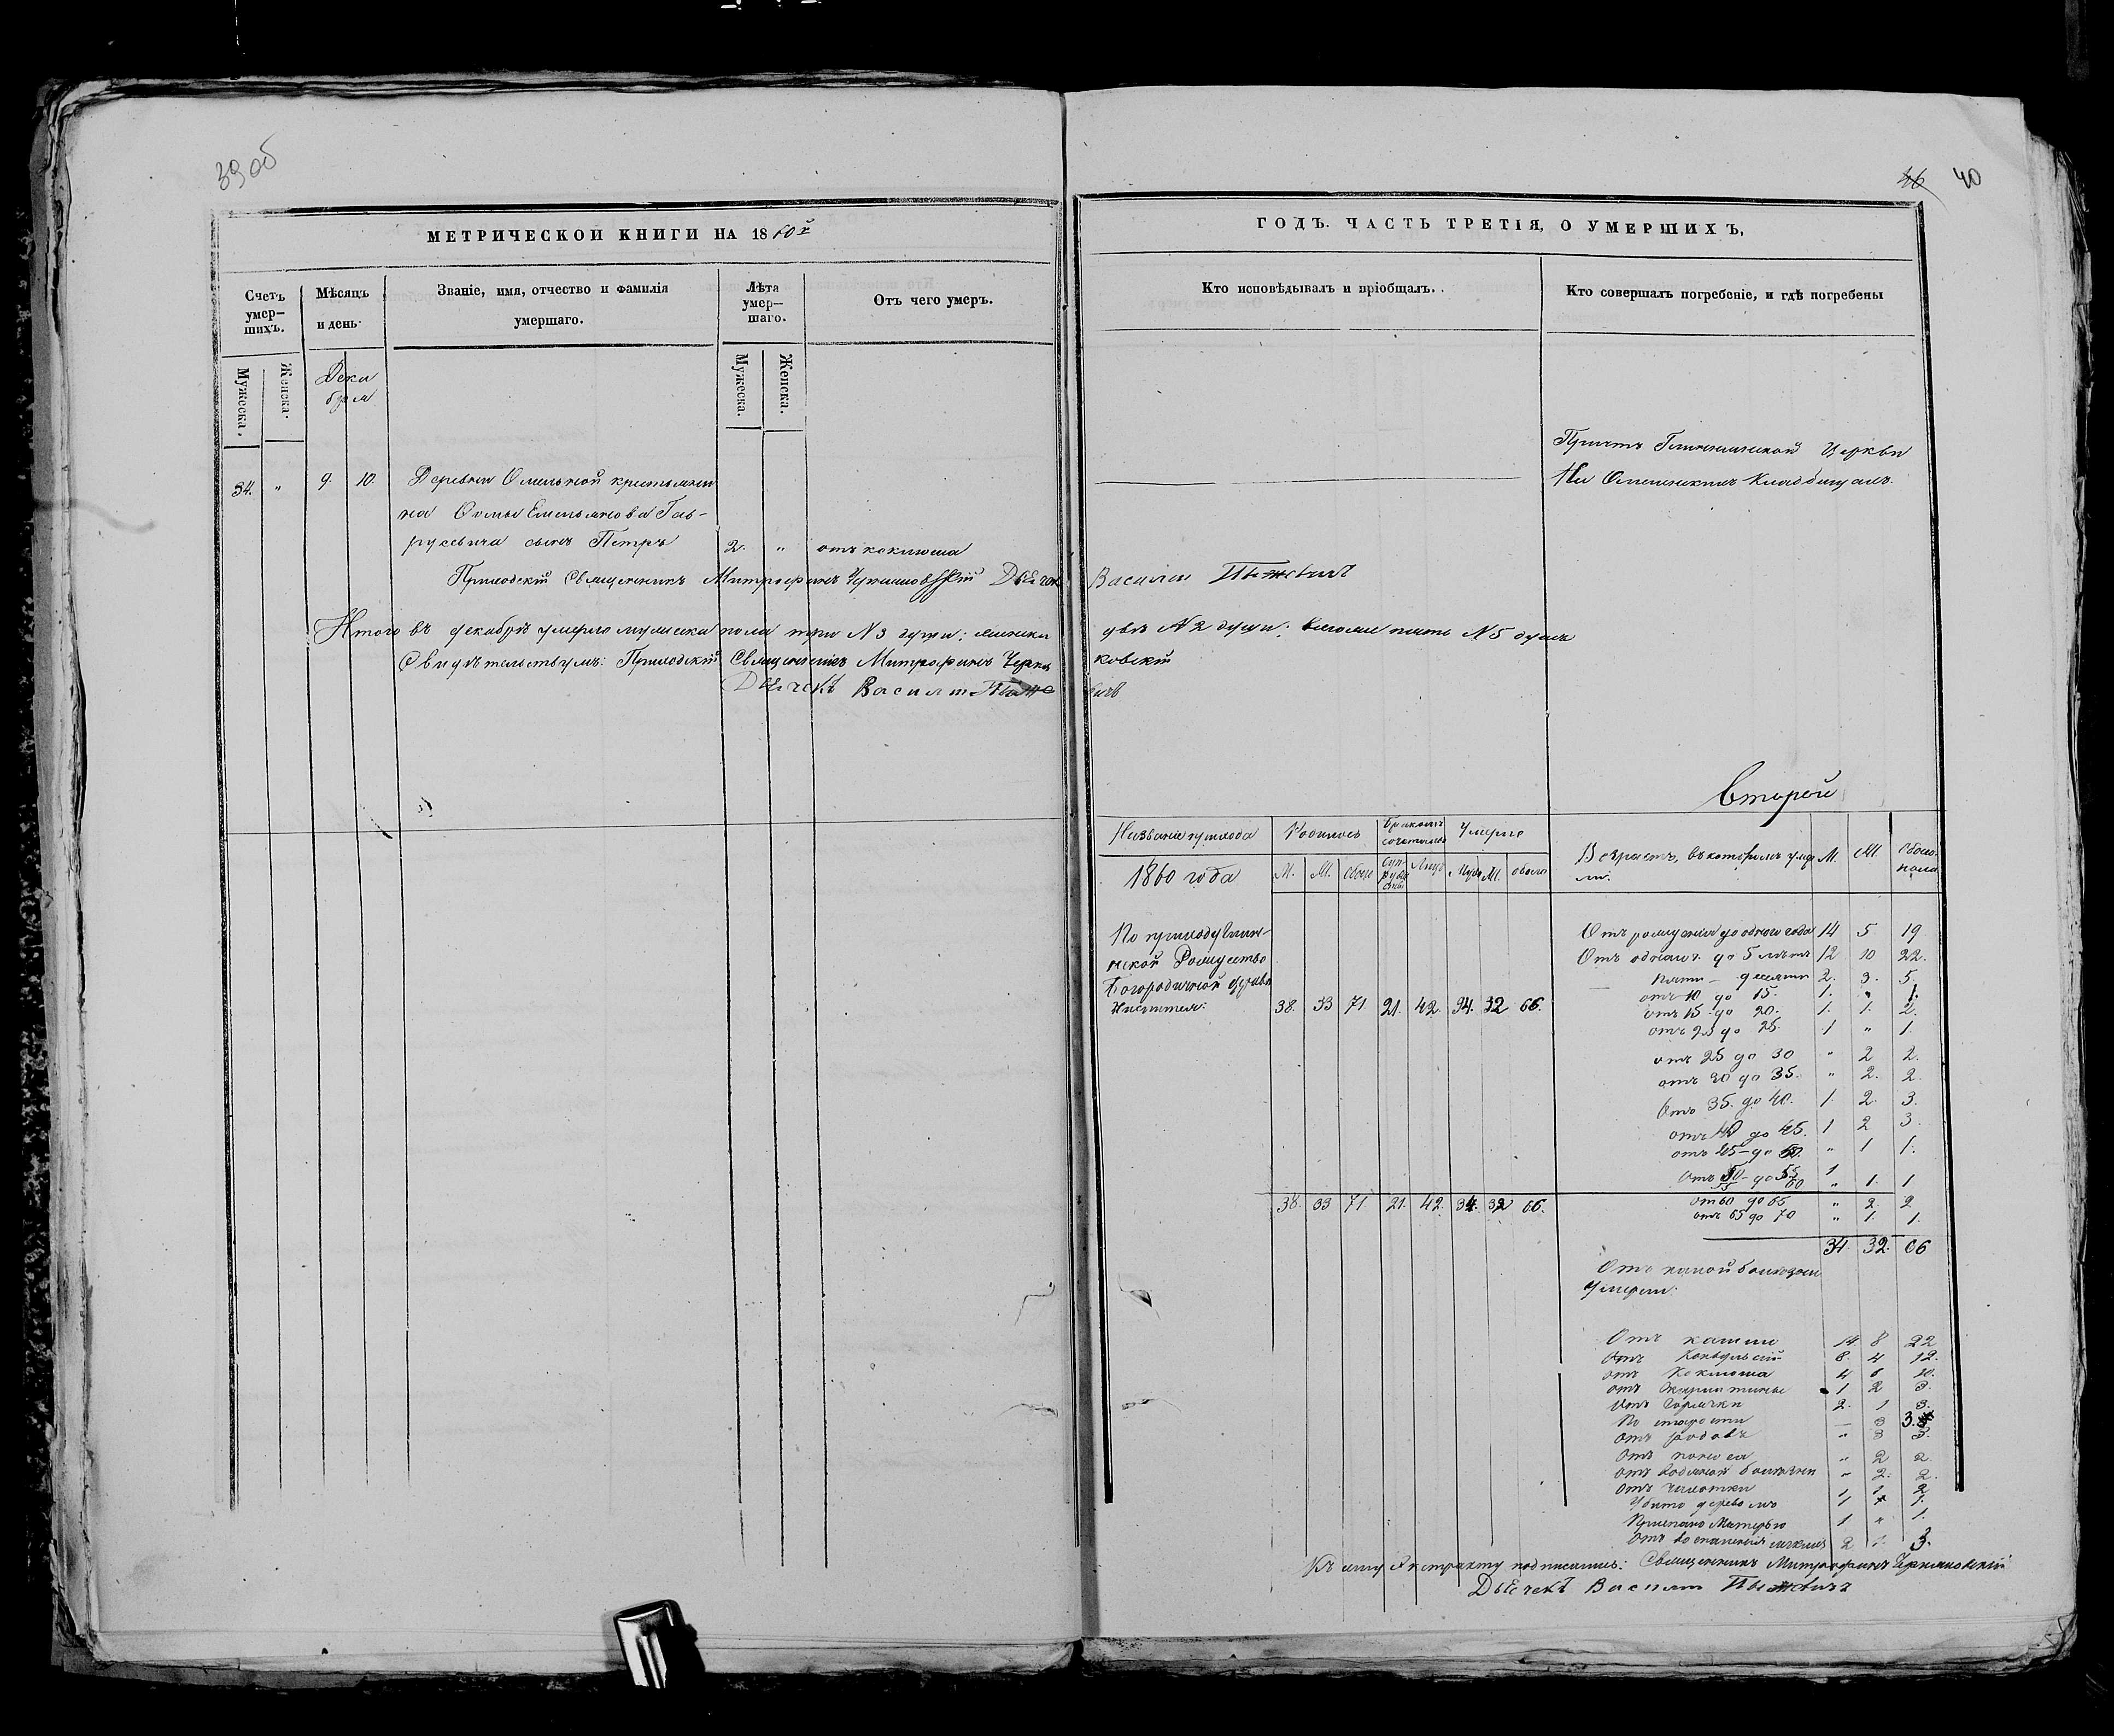 39 об
МЕТРИЧЕСКОЙ КНИГИ НА 1860й
Счетъ умер-шихъ.
Мѣсяцъ и день.
Званіе, имя, отчество и фамилія умершаго.
Лѣта умер-шаго.
Отъ чего умеръ.
Мужеска.
Женска.
Мужеска.
Женска.
Дека
бря
34. " 9. 10. Деревни
крестьяни
на Фомы Емельянова Гав-
русевича сынъ Петръ 2. " отъ коклюша
Приходскій Священникъ Митрофанъ Дьячекъ
Итого въ декабрѣ умерло мужеска пола три № 3 души; женска
Свидѣтельствуемъ: Приходскій Священникъ Митрофанъ
Дьячекъ Василій
46 40
ГОДЪ. ЧАСТЬ ТРЕТІЯ, О УМЕРШИХЪ,
Кто исповѣдывалъ и пріобщалъ.
Кто совершалъ погребеніе, и гдѣ погребены
Причтъ Церкви
На Кладбищахъ.
Василій
двѣ № 2 души; пять № 5 душъ
ковскій
вичъ
Второй
Названіе прихода Родилось Бракомъ сочеталось Умерло
1860 года
М. Ж. обоего Суп-руже-ствъ Лицъ Муж. Ж. обоего
Возрастъ, въ которомъ умер-
ли. М. Ж. Обоего
пола
По приходу Глин-
ской Рождество
Богородичной церкви
38. 33 71. 21. 42. 34. 32 66.
38. 33 71 21. 42. 34. 32 66.
Отъ рожденія до одного года 14 5 19
Отъ одного г. до 5 лѣтъ 12 10 22.
— пяти — десяти 2. 3. 5.
отъ 10 до 15. 1. " 1.
отъ 15 до 20. 1. 1. 2.
отъ 20 до 25. 1 " 1.
отъ 25 до 30 " 2 2.
отъ 30 до 35. " 2. 2.
отъ 35. до 40. 1. 2. 3.
отъ 40 до 45. 1 2 3.
отъ 45 – до 50. " 1 1.
отъ 50 – до 55 1
55 60 " 1. 1
от 60 до 65 " 2. 2
отъ 65 до 70 " 1. 1.
34. 32. 66
Отъ какой болѣзни
умерли:
Отъ кашлю 14 8 22
Отъ Конвульсій 8. 4 12.
отъ Коклюша 4 6 10.
отъ 1 2 3.
Отъ Горячки 2. 1 3.
По старости — 3 3.
Отъ родовъ " 3 3.
Отъ поноса " 2 2
Отъ Водяной болѣзни " 2. 2.
Отъ чахотки 1 1 2
Убито деревомъ 1 " 1.
Матерью 1 " 1.
Отъ воспаленія легкихъ 2 1. 3.
Къ сему Экстракту подписались: Священникъ Митрофанъ
Дьячекъ Василій